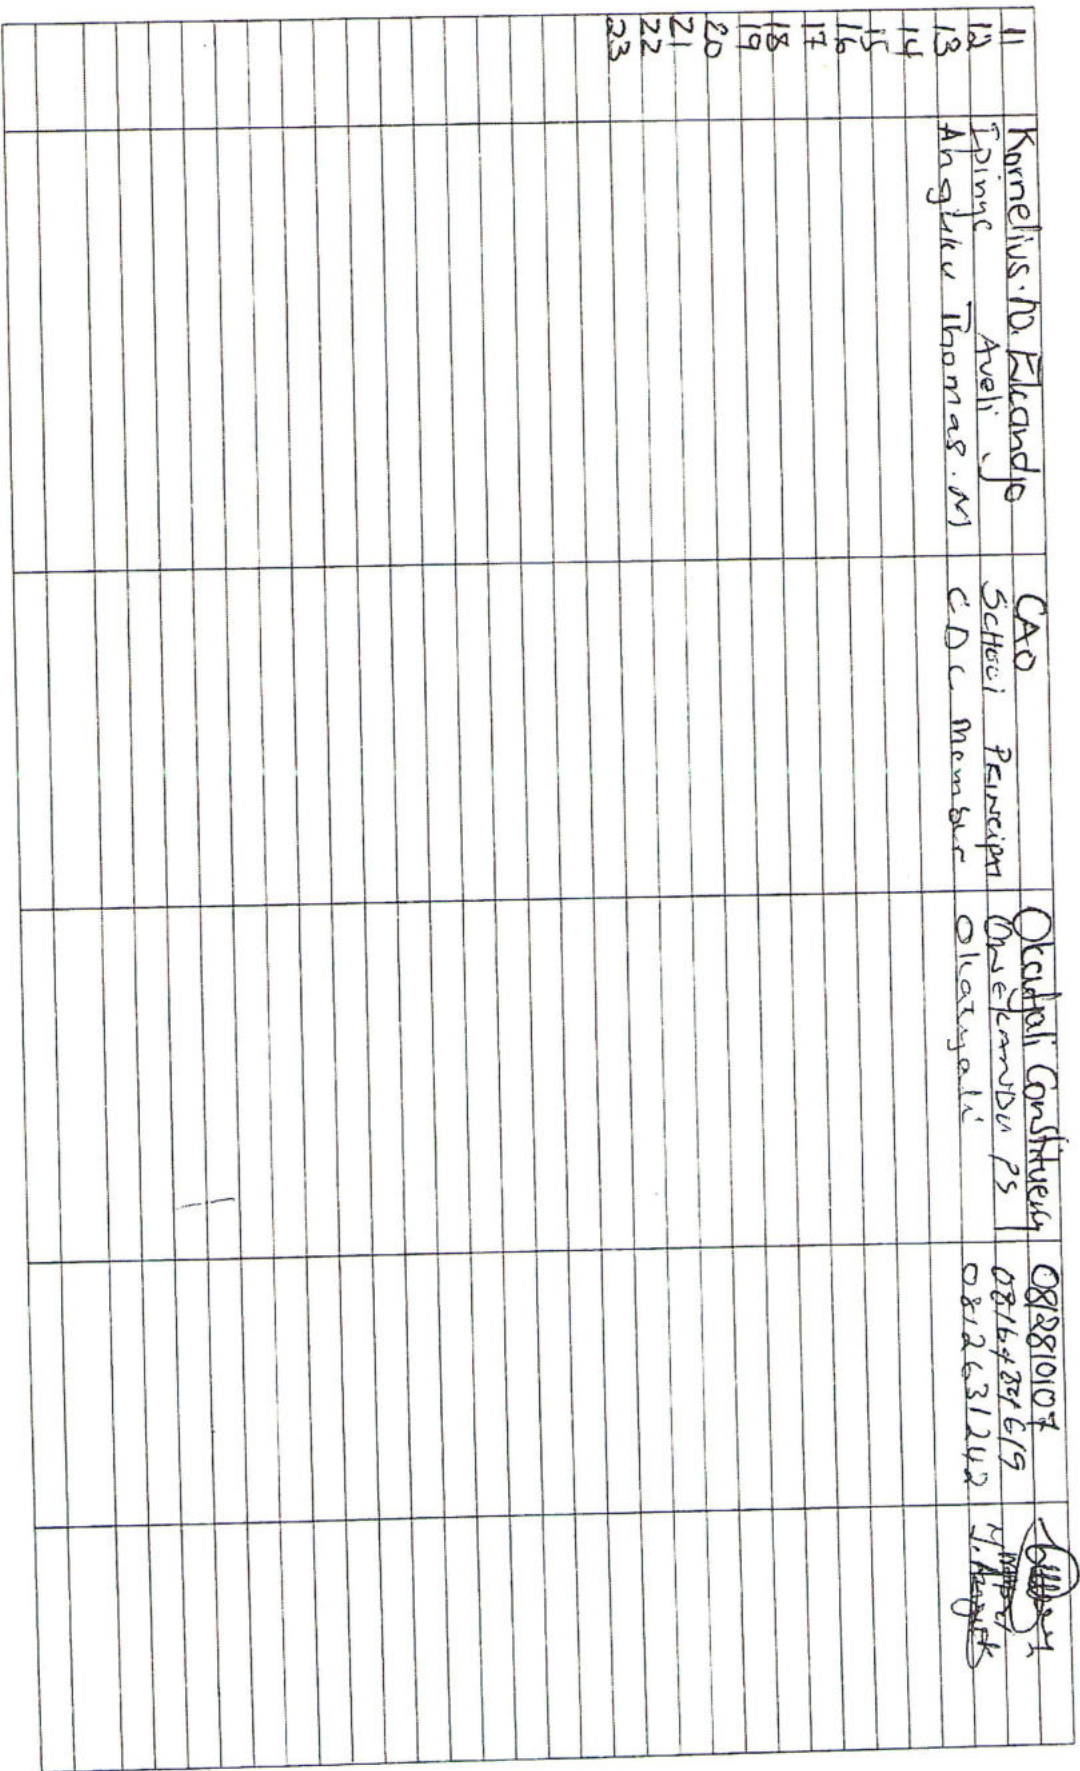 11 Kornelius. N. Ekandjo CAO Okatyali Constituency 0812810107
12 Ipinge Aveli .J School PRINCIPAL ONEKANDU PS 0816484619
13 Anghuu Thomas. M CDC Member Okatyali 0812631242
14
15
16
17
18
19
20
21
22
23